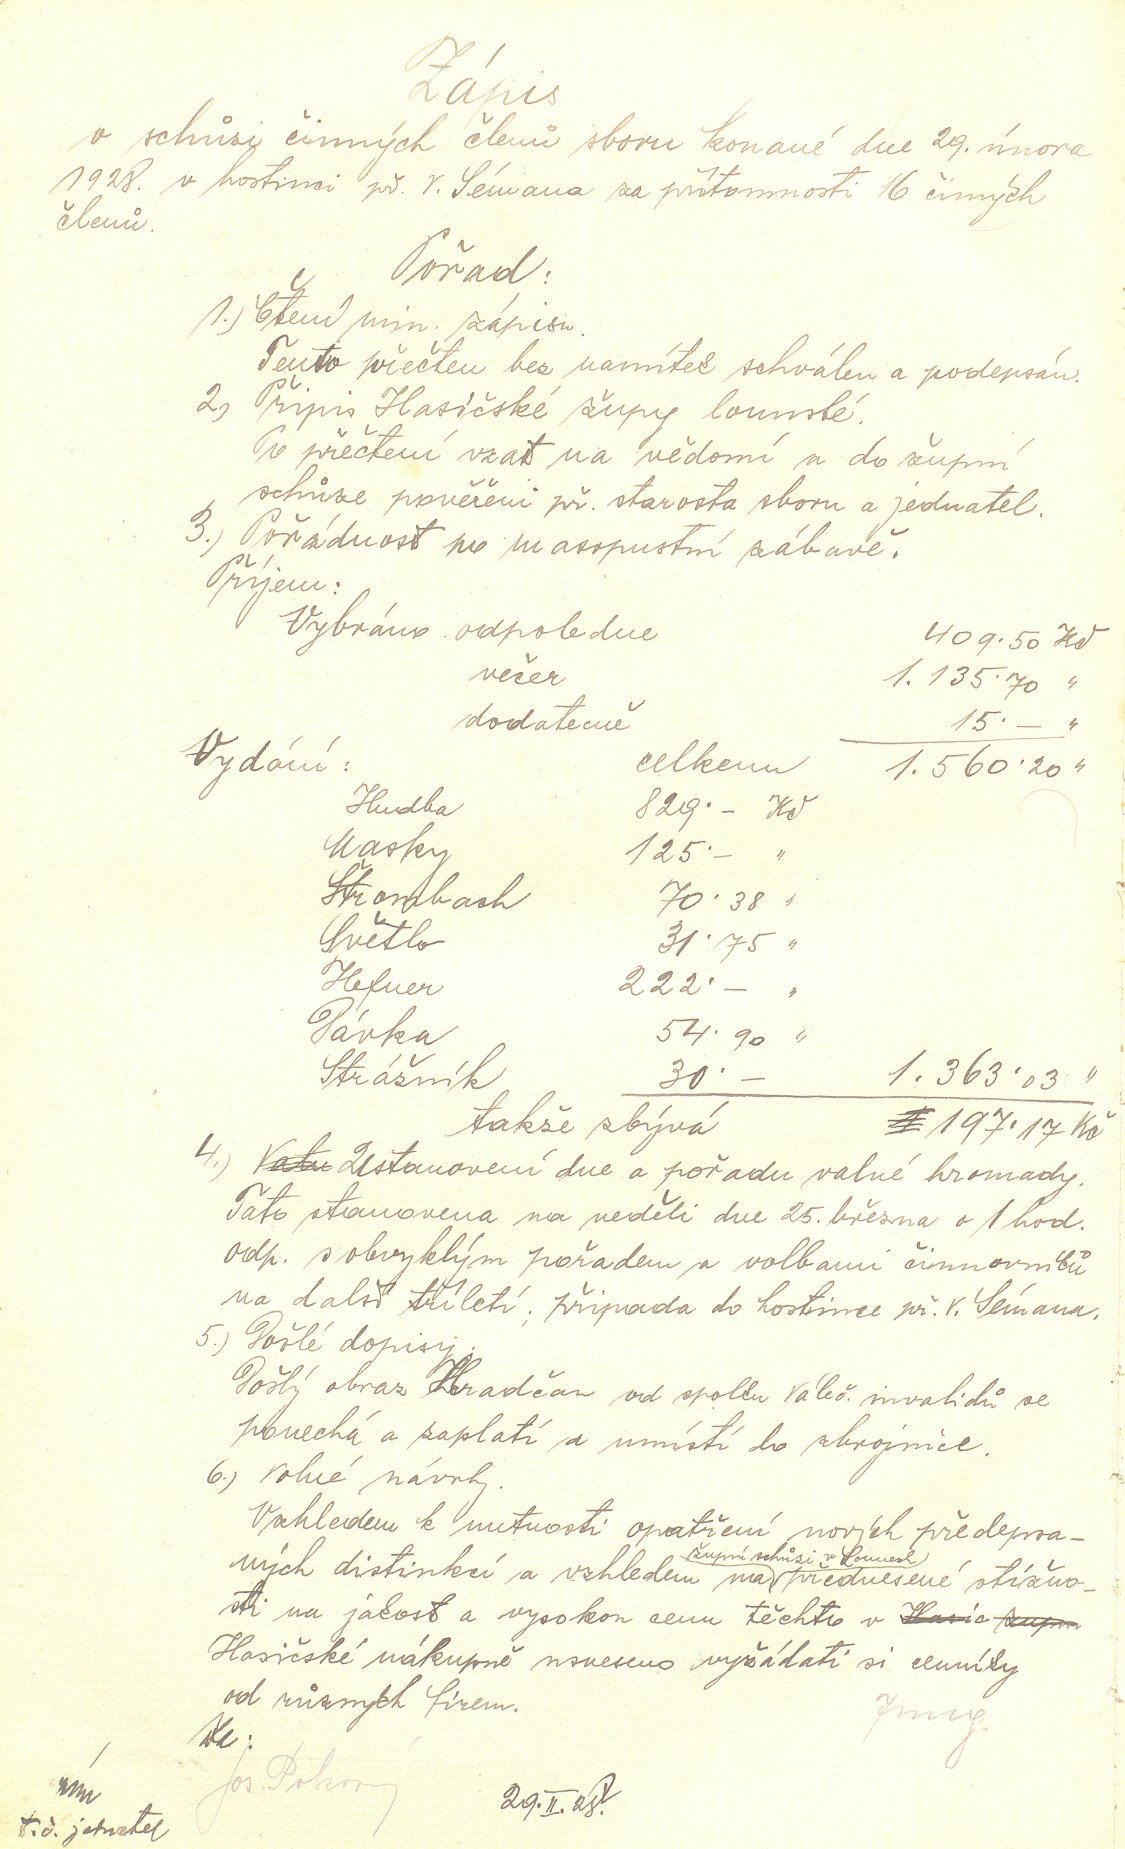 Zápis
o schůzi činných členů sboru konané dne 29. února
1928. v hostinci př. V. Sémana za přítomnosti 16 činných
členů.
Pořad:
1.) Čtení min. zápisu.
Tento přečten bez namítek schválen a podepsán.
2.) Přípis Hasičské župy lounské.
Po přečtení vzat na vědomí a do župní
schůze pověřeni př. starosta sboru a jednatel.
3.) Pořádnost po masopustní zábavě.
Příjem:
Vybráno odpoledne 409.50 Kč
večer 1.135.70 "
dodatečně 15.— "
Vydání: celkem 1.560.20 "
Hudba 829.— Kč
Masky 125.— "
Štrombach 70.38 "
Světlo 31.75 "
Hefner 222.— "
Dávka 54.90 "
Strážník 30.— 1.363.03 "
takže zbývá 197.17 Kč
4.) Valn Ustanovení dne a pořadu valné hromady.
Tato stanovena na neděli dne 25. března o 1 hod.
odp. s obvyklým pořadem a volbami činnovníků
na další tříletí, připadá do hostince př. V. Sémana.
5.) Došlé dopisy.
Došlý obraz Hradčan od spolku váleč. invalidů se
ponechá a zaplatí a umístí do zbrojnice.
6.) Volné návrhy.
Vzhledem k nutnosti opatření nových předepsa-
ných distinkcí a vzhledem na župní schůzi v Lounech přednesené stížno-
sti na jakost a vysokou cenu těchto v Hasič župn
Hasičské nákupně usneseno vyžádati si cenníky
od různých firem.
29.II.28.
t.č. jednatel